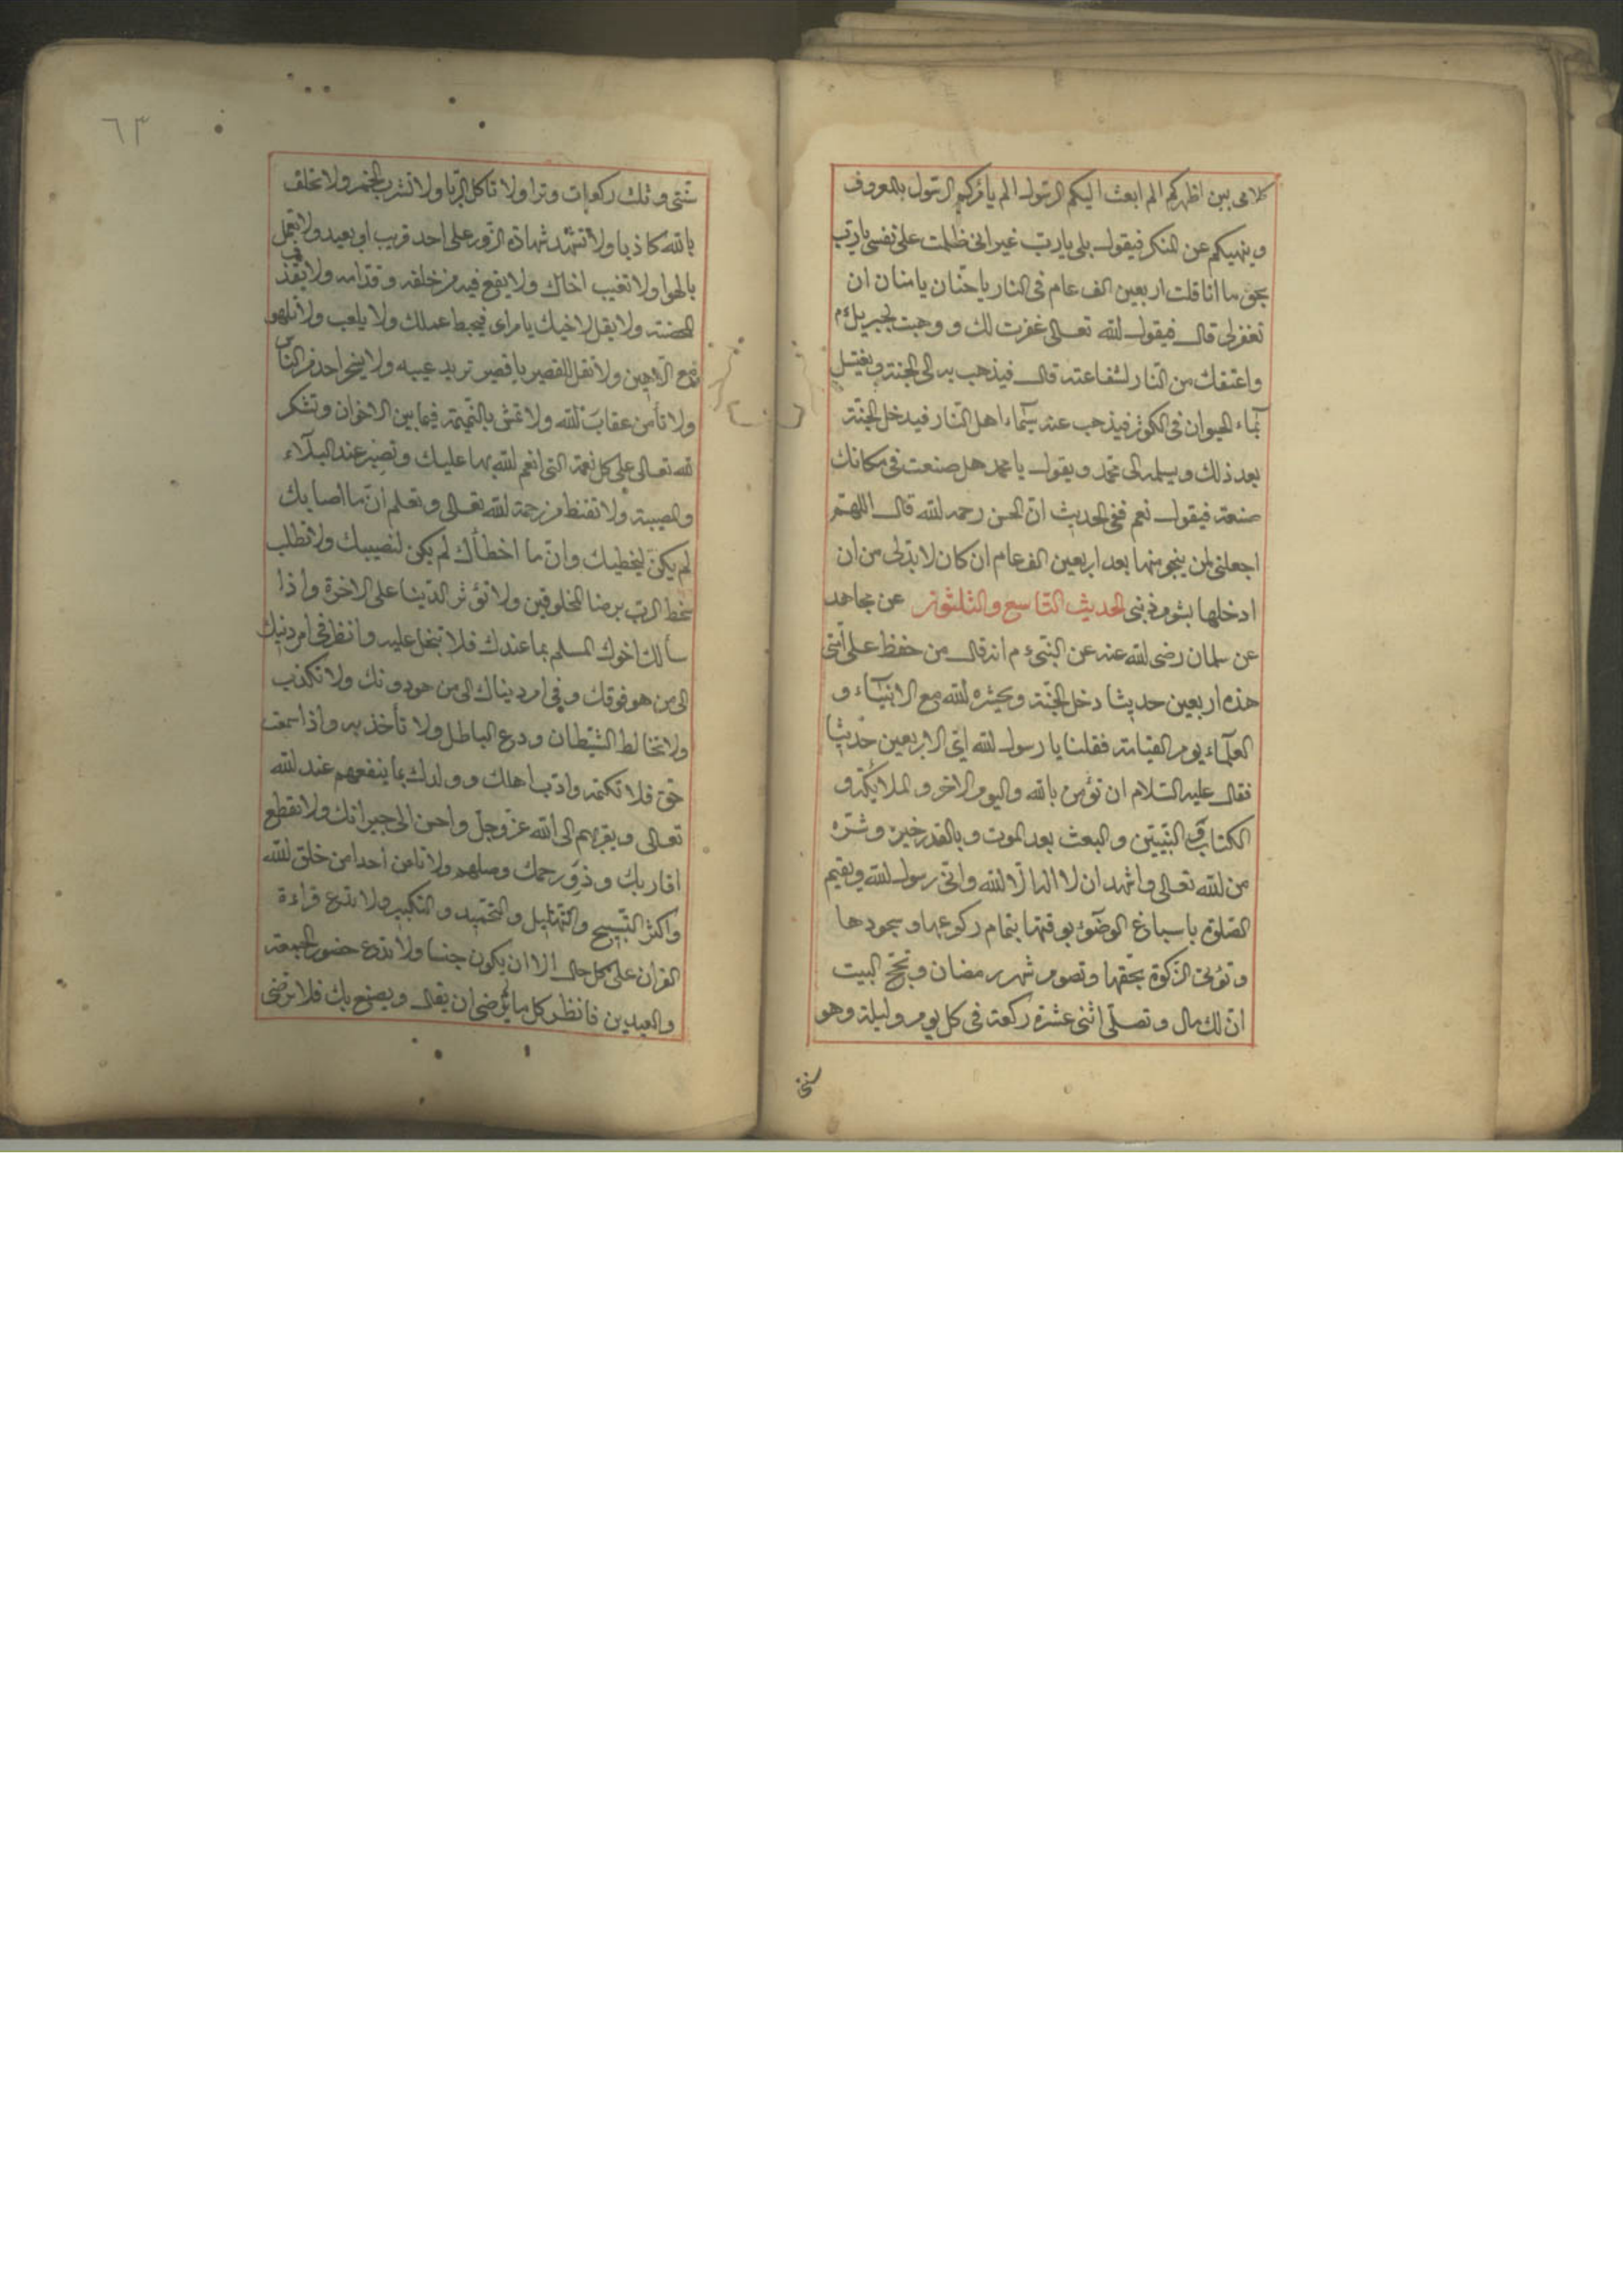 كلامى بين اظهركم الم ابعث اليكم الرسول الم يأمركم الرسول بالمعروف
وينهيكم عن المنكر فيقول بلى يا رب غير انى ظلمت على نفسى يا رب
بحق ما انا قلت اربعين الف عام فى النار يا حنان يا منان ان
تغفر لى قال فيقول الله تعالى غفرت لك و وجبت لجبريل ءم
واعتقك من النار لشفاعته قال فيذهب به الى الجنة و يغتسل
بماء الحيوان فى الكوثر فيذهب عنه سيماء اهل النار فيدخل الجنة
بعد ذلك ويسلم الى محمد ويقول يا محمد هل صنعت فى مكانك
صنعة فيقول نعم ففى الحديث ان الحسن رحمه الله قال اللهم
اجعلنى لمن ينجو منها بعد اربعين الف عام ان كان لا بد لى من ان
ادخلها بشوم ذنبى الحديث التاسع والثلثون عن مجاهد
عن سلمان رضى الله عنه عن النبى ءم انه قال من حفظ على امتى
هذه اربعين حديثا دخل الجنة ويحشره الله مع الانبياء و
العلماء يوم القيامة فقلنا يا رسول الله اى الاربعين حديثا
فقال عليه السلام ان تؤمن بالله واليوم الاخر والملائكة و
الكتاب والنبيين والبعث بعد الموت وبالقدر خيره وشره
من الله تعالى واشهد ان لا اله الا الله وانى رسول الله وتقيم
الصلوة باسباغ الوضوء بوقتها بتمام ركوعها وسجودها
وتؤتى الزكوة بحقها وتصوم شهر رمضان وتحج البيت
ان لك مال وتصلى اثنى عشرة ركعة فى كل يوم وليلة وهو
سنتى
٦٣
سنتى وثلث ركعات وترا ولا تاكل الربا ولا تشرب الخمر ولا تحلف
بالله كاذبا ولا تشهد شهادة الزور على احد قريب او بعيد ولا تعمل
بالهوا ولا تغيب اخاك ولا يقع فيه من خلفه وقدامه ولا تقذف
المحصنة ولا يقل لاخيك يا مراى فيحبط عملك ولا يلعب ولا تلهو
مع اللاهين ولا تقل للقصير يا قصير تريد عيبه ولا يسخر احد من الناس
ولا تأمن عقاب الله ولا تمش بالنميمة فيما بين الاخوان وتشكر
لله تعالى على كل نعمة التى انعم الله بها عليك وتصبر عند البلاء
والمصيبة ولا تقنط من رحمة الله تعالى وتعلم ان ما اصابك
لم يكن ليخطيك وان ما اخطأك لم يكن لنصيبك ولا تطلب
سخط الرب برضا المخلوقين ولا تؤثر الدنيا على الاخرة واذا
سألك اخوك المسلم بما عندك فلا تبخل عليه وانظر فى امر دنيك
الى من هو فوقك وفى امر ديناك الى من هو دونك ولا تكذب
ولا تخالط الشيطان ودع الباطل ولا تأخذ به واذا سمعت
حق فلا تكتمه وادب اهلك و ولدك بما ينفعهم عند الله
تعالى ويقربهم الى الله عز وجل واحسن الى جيرانك ولا تقطع
اقاربك وذو رحمك وصلهم ولا تامن أحدا من خلق الله
واكثر التسبيح والتهليل والتحميد والتكبير ولا تدع قراءة
القرآن على كل حال الا ان يكون جنبا ولا تدع حضور الجمعة
والعيدين فانظر كل ما لم يرضى ان يقال ويصنع بك فلا ترضى